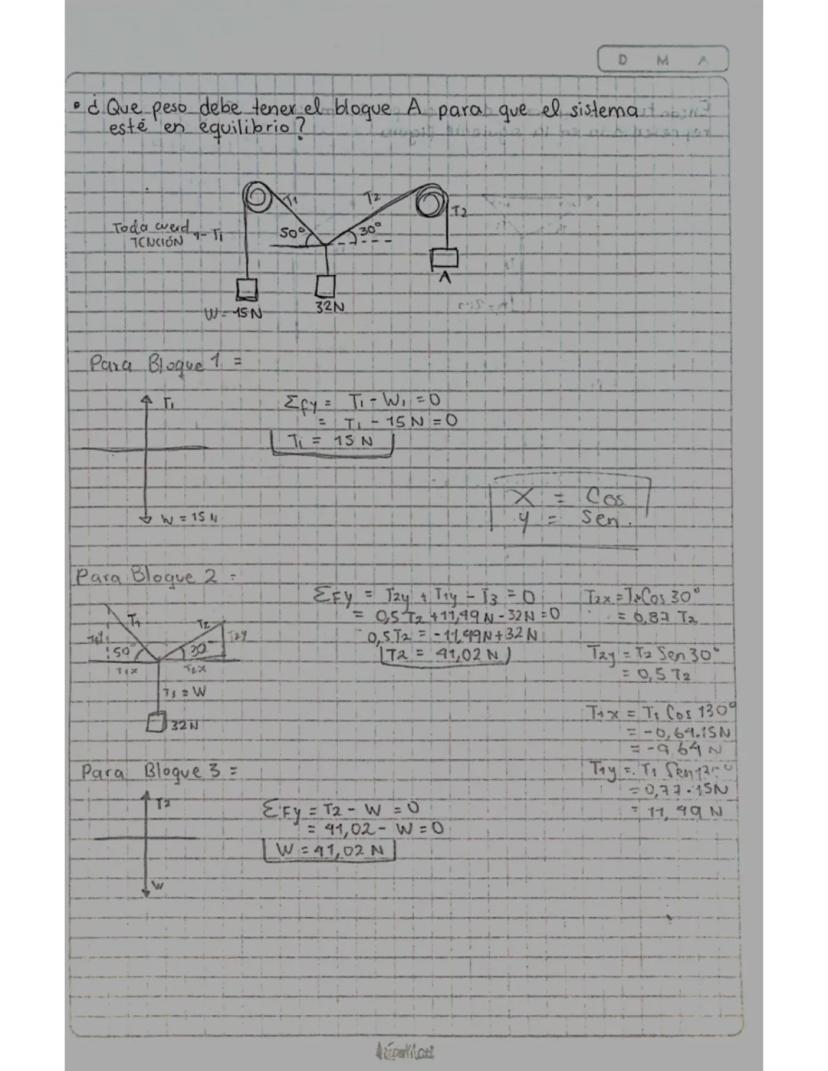 D M A
• ¿Que peso debe tener el bloque A para que el sistema
esté en equilibrio?
T1
T2
T2
Toda cuerd
TENCIÓN
T1
50°
30°
A
W = 15N
32N
Para Bloque 1 =
T1
W = 15N
ΣFy = T1 - W1 = 0
= T1 - 15N = 0
T1 = 15 N
X = Cos
y = Sen.
Para Bloque 2 =
T1
T2
T2y
50°
30°
T1x
T2x
T3 = W
32N
ΣFy = T2y + T1y - T3 = 0
= 0,5T2 + 11,49N - 32N = 0
0,5T2 = -11,49N + 32N
T2 = 41,02 N
T2x = T2 Cos 30°
= 0,87 T2
T2y = T2 Sen 30°
= 0,5 T2
T1x = T1 Cos 130°
= -0,64.15N
= -9,64 N
T1y = T1 Sen
= 0,77 · 15N
= 11,49 N
Para Bloque 3 =
T2
W
ΣFy = T2 - W = 0
= 41,02 - W = 0
W = 41,02 N